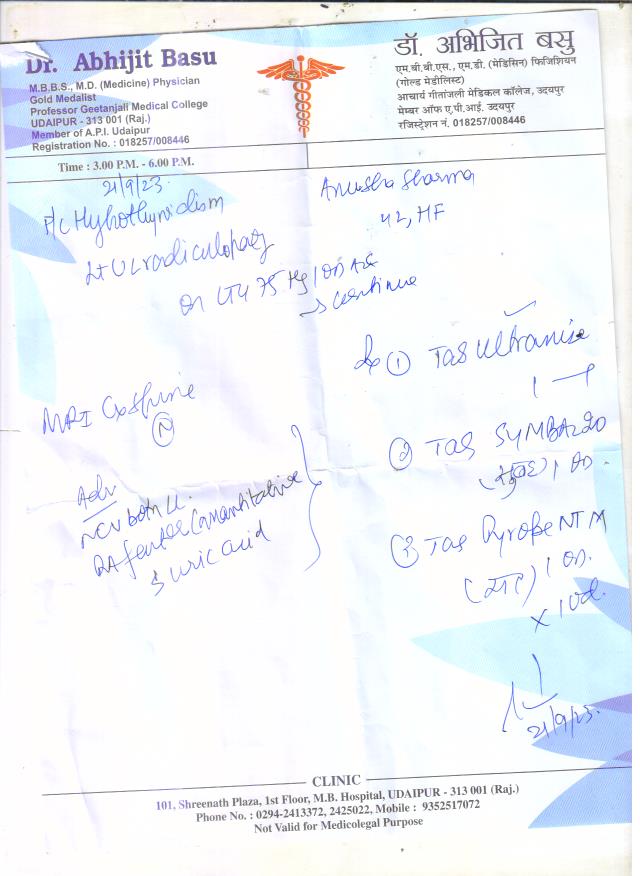 Dr. Abhijit Basu
M.B.B.S., M.D. (Medicine) Physician
Gold Medalist
Professor Geetanjali Medical College
UDAIPUR - 313 001 (Raj.)
Member of A.P.I. Udaipur
Registration No. : 018257/008446
डॉ. अभिजित बसु
एम.बी.बी.एस., एम.डी. (मेडिसिन) फिजिशियन
(गोल्ड मेडीलिस्ट)
आचार्य गीतांजली मेडिकल कॉलेज, उदयपुर
मेम्बर ऑफ ए.पी.आई. उदयपुर
रजिस्ट्रेशन नं. 018257/008446
Time : 3.00 P.M. - 6.00 P.M.
21/9/23.
Anusha Sharma
42,
Hypothyroidism
Lt UL radiculopathy
on 75
→ continue
① TAB
1
MRI Cx Spine
(N)
② TAB SYMBAL 20
1 OD.
Adv
NCV both UL
RA factor (quantitative
S uric acid
③ TAB NT M
1 OD.
x 10d.
21/9/23.
CLINIC
101, Shreenath Plaza, 1st Floor, M.B. Hospital, UDAIPUR - 313 001 (Raj.)
Phone No. : 0294-2413372, 2425022, Mobile : 9352517072
Not Valid for Medicolegal Purpose